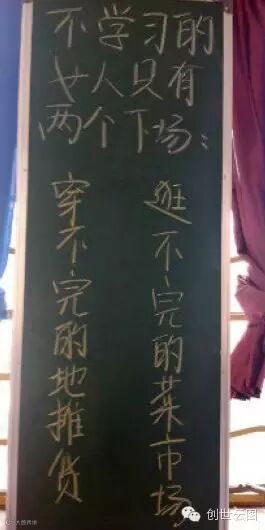 不学习的
女人只有
两个下场：
逛不完的菜市场
穿不完的地摊货
创世云图